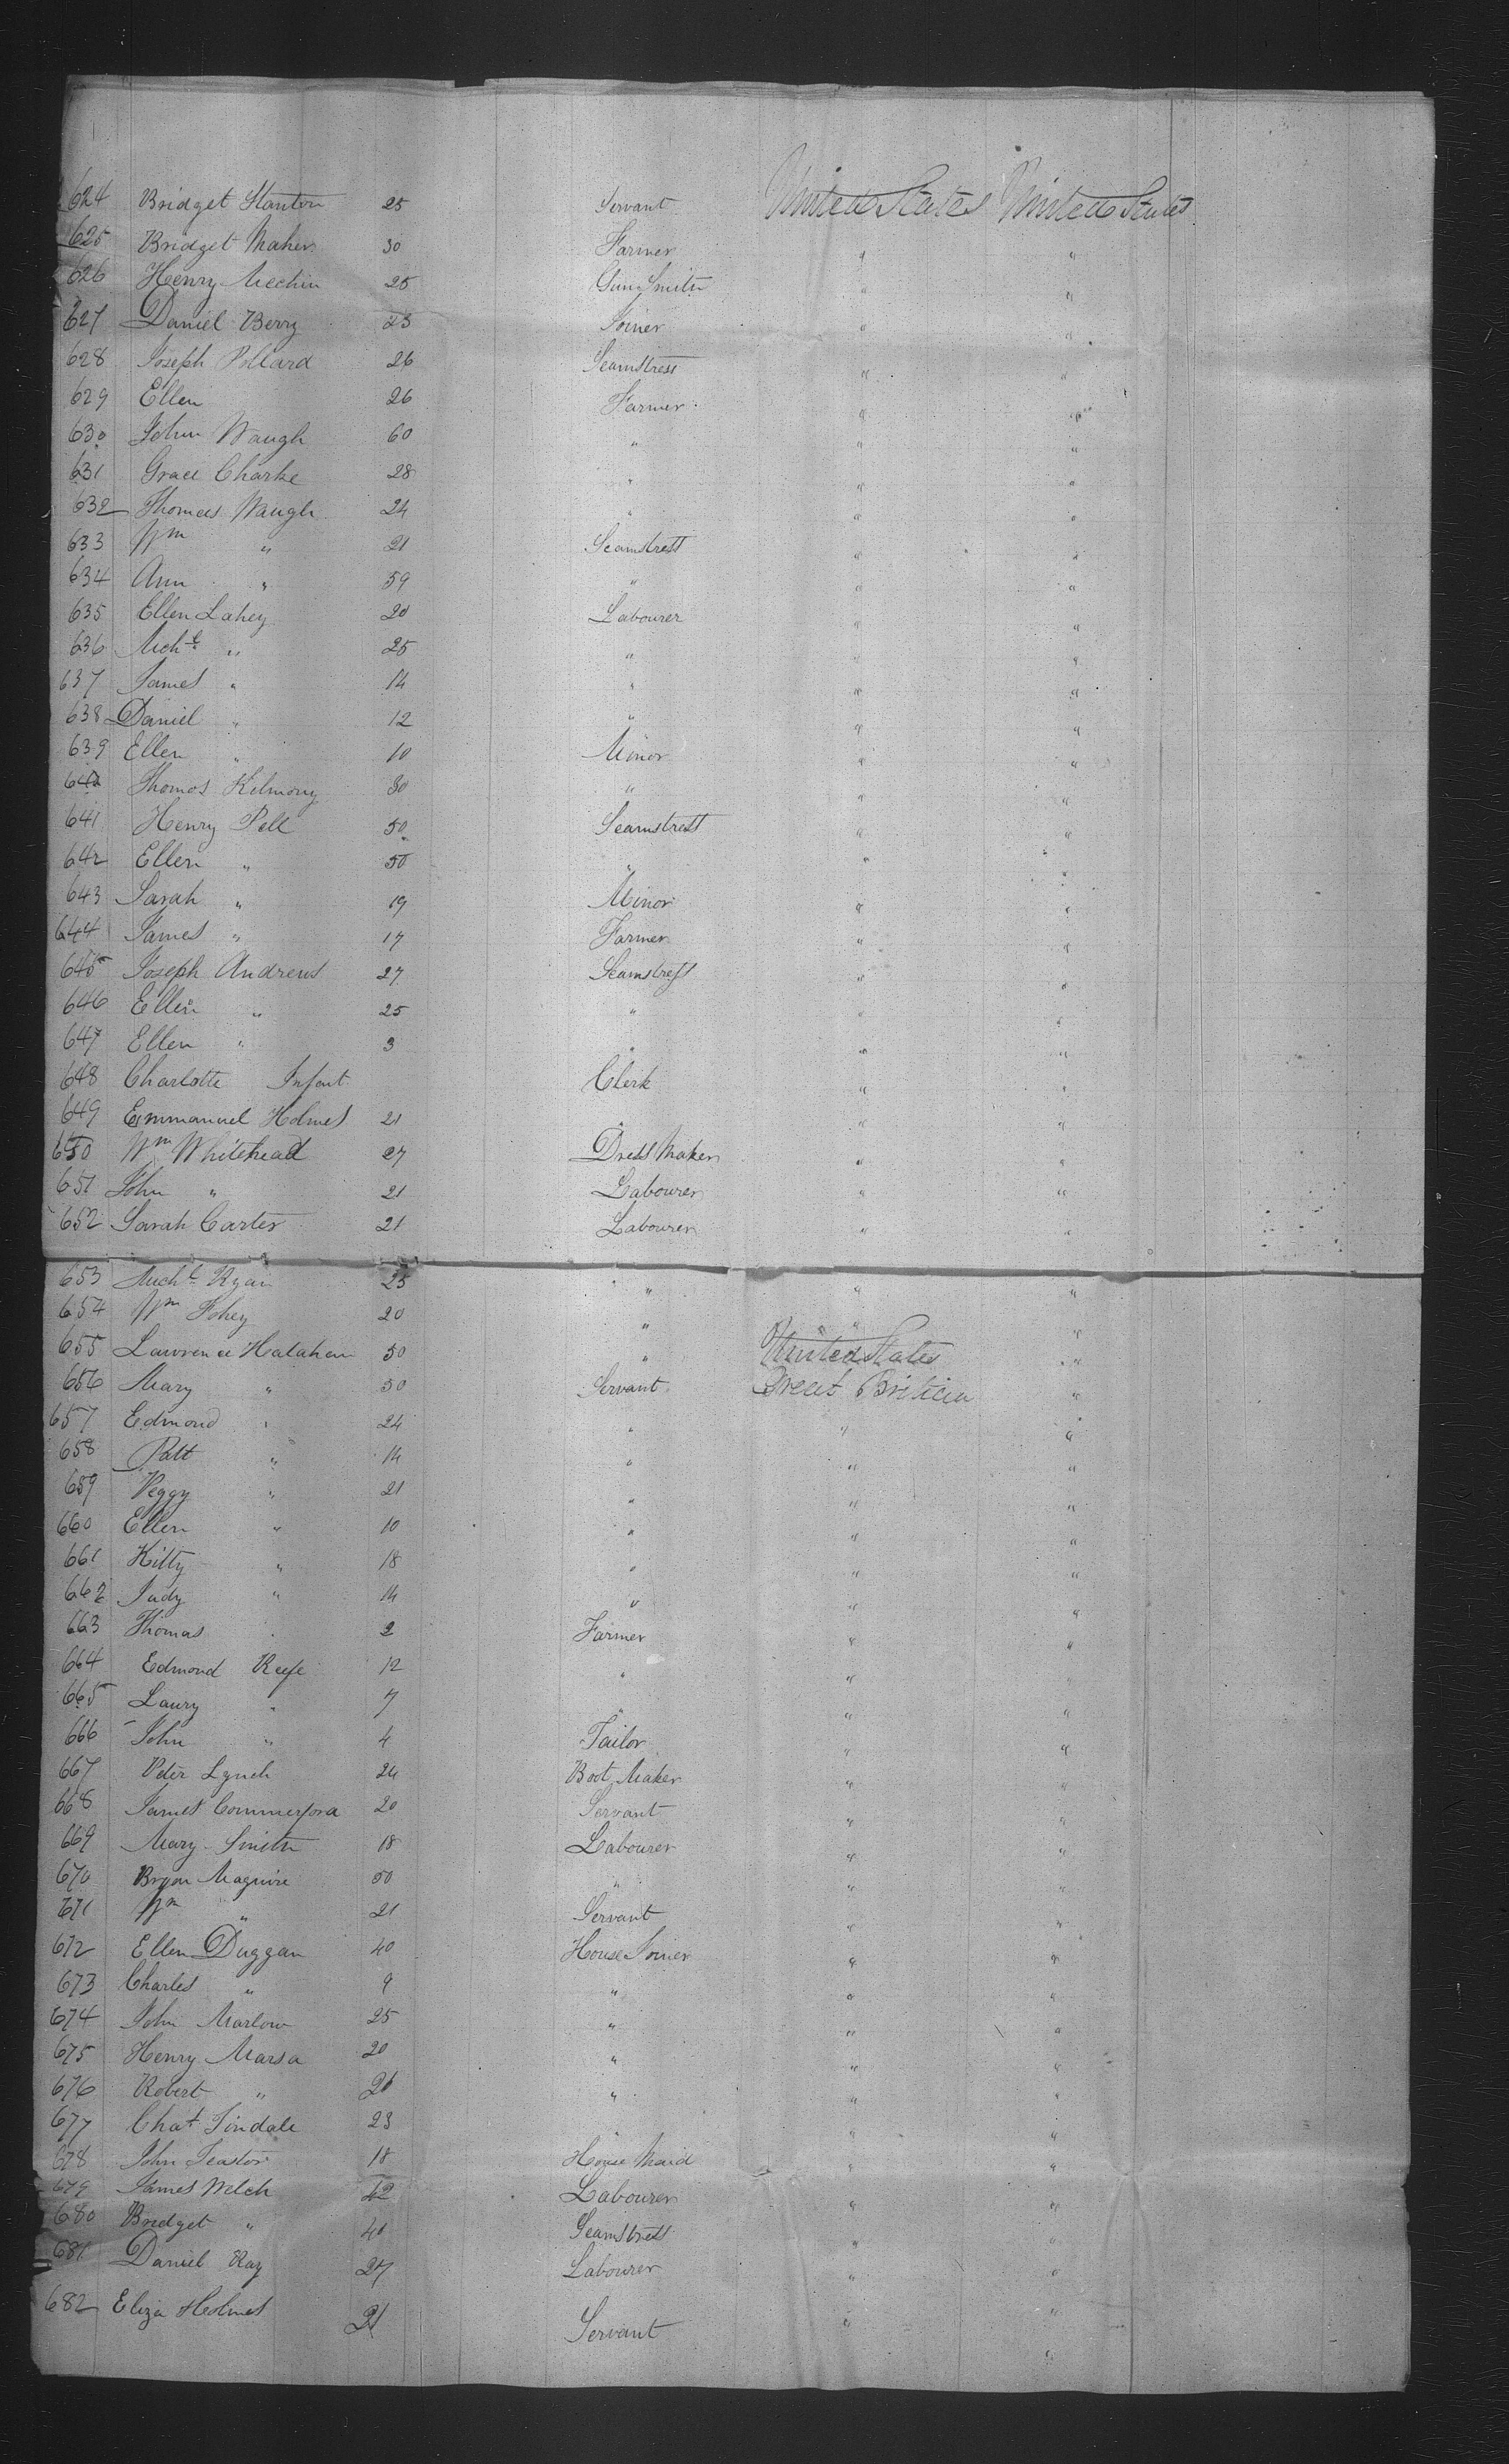 624 Bridget Stanton 25 Servant United States United States
625 Bridget Maher 30 Farmer " "
626 Henry Mechin 25 Gun Smith " "
627 Daniel Berry 23 Joiner " "
628 Joseph Pollard 26 Seamstress " "
629 Ellen 26 Farmer " "
630 John Waugh 60 " " "
631 Grace Charke 28 " " "
632 Thomas Waugh 24 " " "
633 Wm " 21 Seamstress " "
634 Ann " 59 " " "
635 Ellen Lahey 20 Labourer " "
636 Michl " 25 " " "
637 James " 14 " " "
638 Daniel " 12 " " "
639 Ellen " 10 Minor " "
640 Thomas Kilmony 30 " " "
641 Henry Pell 50 Seamstress " "
642 Ellen " 50 " " "
643 Sarah " 19 Minor " "
644 James " 17 Farmer " "
645 Joseph Andrews 27 Seamstress " "
646 Ellen " 25 " " "
647 Ellen " 3 " " "
648 Charlotte Infant Clerk " "
649 Emmanuel Holmes 21 " " "
650 Wm Whitehead 27 Dress Maker " "
651 John " 21 Labourer " "
652 Sarah Carter 21 Labourer " "
653 Michl Ryan 25 " " "
654 Wm Fohey 20 " " "
655 Lawrence Halahan 50 " United States "
656 Mary " 50 Servant Great Britian "
657 Edmond " 24 " " "
658 Patt " 14 " " "
659 Peggy " 21 " " "
660 Ellen " 10 " " "
661 Kitty " 18 " " "
662 Judy " 14 " " "
663 Thomas " 2 Farmer " "
664 Edmond Keefe 12 " " "
665 Laury " 7 " " "
666 John " 4 Tailor " "
667 Peter Lynch 24 Boot Maker " "
668 James Commerford 20 Servant " "
669 Mary Smith 18 Labourer " "
670 Bryan Maguire 50 " " "
671 Wm " 21 Servant " "
672 Ellen Duggan 40 House Joiner " "
673 Charles " 9 " " "
674 John Marlow 25 " " "
675 Henry Marsa 20 " " "
676 Robert " 26 " " "
677 Chas Tindale 23 " " "
678 John Teastor 18 House Maid " "
679 James Welch 42 Labourer " "
680 Bridget " 40 Seamstress " "
681 Daniel Ray 27 Labourer " "
682 Eliza Holmes 21 Servant " "